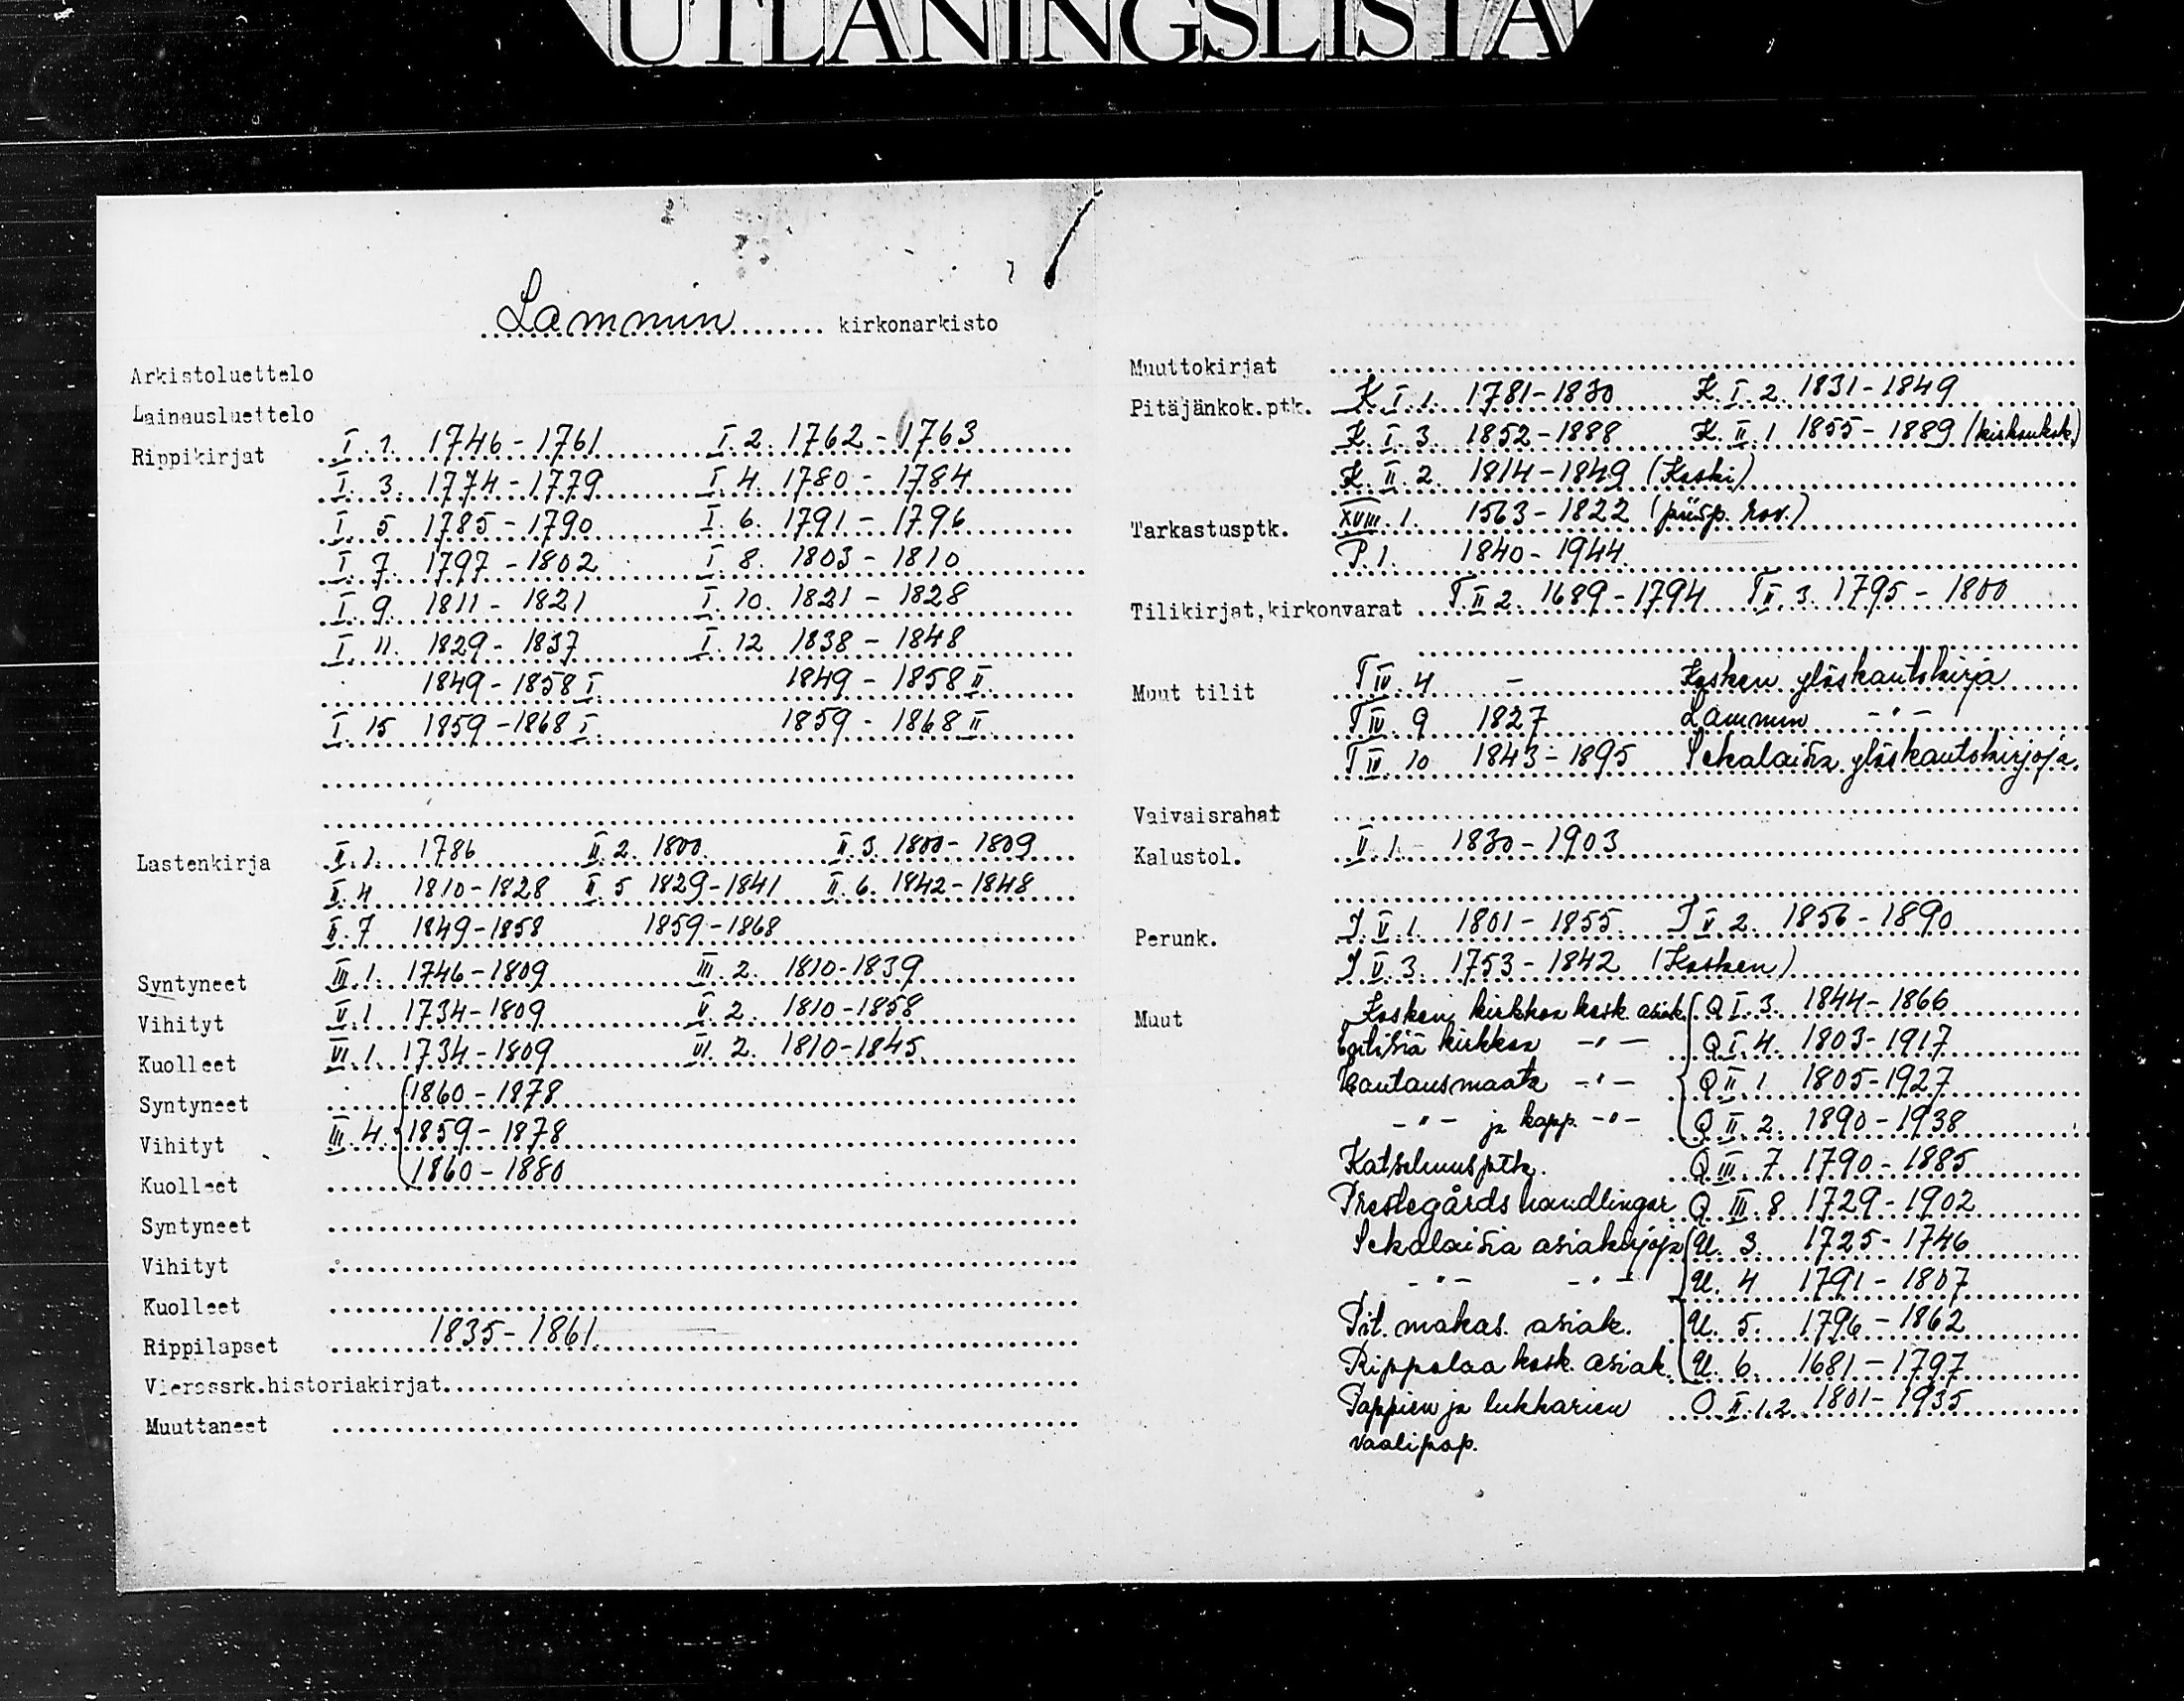 UTLÅNINGSLISTA
Lammin kirkonarkisto
Arkistoluettelo
Lainausluettelo
Rippikirjat I. 1. 1746-1761 I. 2. 1762-1763
I. 3. 1774-1779 I. 4. 1780-1784
I. 5 1785-1790 I. 6. 1791-1796
I. 7. 1797-1802 I. 8. 1803-1810
I. 9. 1811-1821 I. 10. 1821-1828
I. 11. 1829-1837 I. 12 1838-1848
1849-1858 I. 1849-1858 II.
I. 15 1859-1868 I. 1859-1868 II.
Lastenkirja II. 1. 1786 II. 2. 1800 II. 3. 1800-1809
II. 4 1810-1828 II. 5 1829-1841 II. 6. 1842-1848
II. 7 1849-1858 1859-1868
Syntyneet III. 1. 1746-1809 III. 2. 1810-1839
Vihityt V. 1 1734-1809 V. 2. 1810-1858
Kuolleet VI. 1. 1734-1809 VI. 2. 1810-1845
Syntyneet 1860-1878
Vihityt III. 4. 1859-1878
Kuolleet 1860-1880
Syntyneet
Vihityt
Kuolleet
Rippilapset 1835-1861
Vierassrk.historiakirjat
Muuttaneet
Muuttokirjat
Pitäjänkok.ptk. K. I. 1. 1781-1830 K. I. 2. 1831-1849
K. I. 3. 1852-1888 K. II. 1 1855-1889 (kirkonkok.)
K. II. 2. 1814-1849 (Koski)
Tarkastusptk. XVIII. 1. 1563-1822 (piisp. rov.)
P. 1. 1840-1944.
Tilikirjat, kirkonvarat T. II 2. 1689-1794 T II. 3. 1795-1800
Muut tilit T IV. 4 - Kosken ylöskantokirja
T IV. 9 1827 Lammin -"-
T IV. 10 1843-1895 Sekalaisia ylöskantokirjoja.
Vaivaisrahat
Kalustol. II. 1. 1830-1903
Perunk. J. V. 1. 1801-1855. J V. 2. 1856-1890
J V. 3. 1753-1842 (Kosken)
Muut Kosken kirkkoa kosk. asiak. Q I. 3. 1844-1866
kirkkoa -"- Q I. 4. 1803-1917
hautausmaata -"- Q II. 1 1805-1927
-"- ja kapp. -"- Q II. 2. 1890-1938
Katselmusptk. Q III. 7 1790-1885
Prestegårds handlingar Q III. 8 1729-1902
Sekalaisia asiakirjoja U. 3. 1725-1746
-"- -"- U. 4 1791-1807
Pit. makas. asiak. U. 5. 1796-1862
Rippalaa kosk. asiak. U. 6. 1681-1797
Pappien ja lukkarien O II. 1.2 1801-1935
vaalipap.